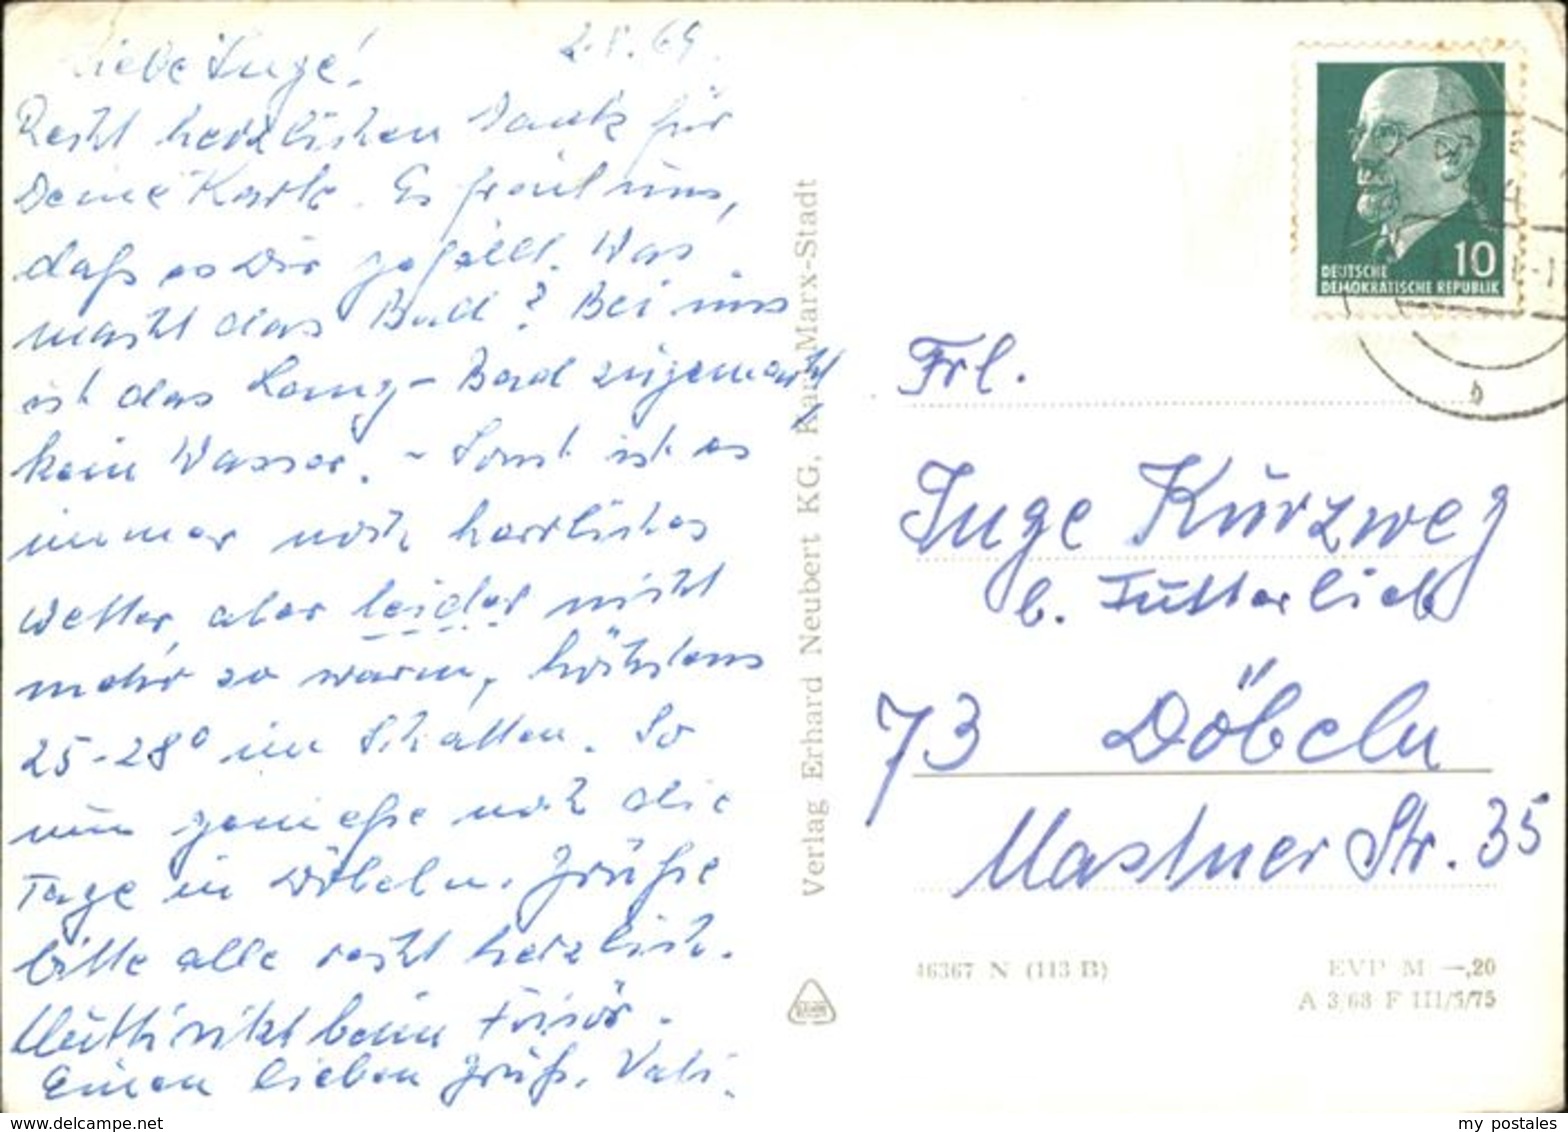 2.8.69.
Liebe Inge!
Recht herzlichen Dank für
Deine Karte. Es freut uns,
daß es Dir gefällt. Was
macht das Bad? Bei uns
ist das Lang-Bad zugemacht
kein Wasser. - Sonst ist es
immer noch herrliches
Wetter, aber leider nicht
mehr so warm, höchstens
25-28° im Schatten. So
nun genieße noch die
Tage in Döbeln. Grüße
bitte alle recht herzlich.
Mutti sitzt beim Frisör.
Einen lieben Gruß, Vati.
Verlag Erhard Neubert KG, Karl-Marx-Stadt
10
DEUTSCHE
DEMOKRATISCHE REPUBLIK
b
Frl.
Inge Kurzweg
b. Futterlieb
73 Döbeln
Mastner Str. 35
46367 N (113 B)
EVP M —,20
A 3/68 F III/5/75
my postales